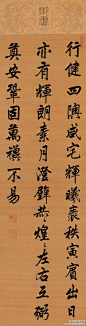 行健四隩咸宅輝曦秩寅賓出日
亦有輝朗素月澄璧煌々左右互弼
奠安鞏固萬禩不易